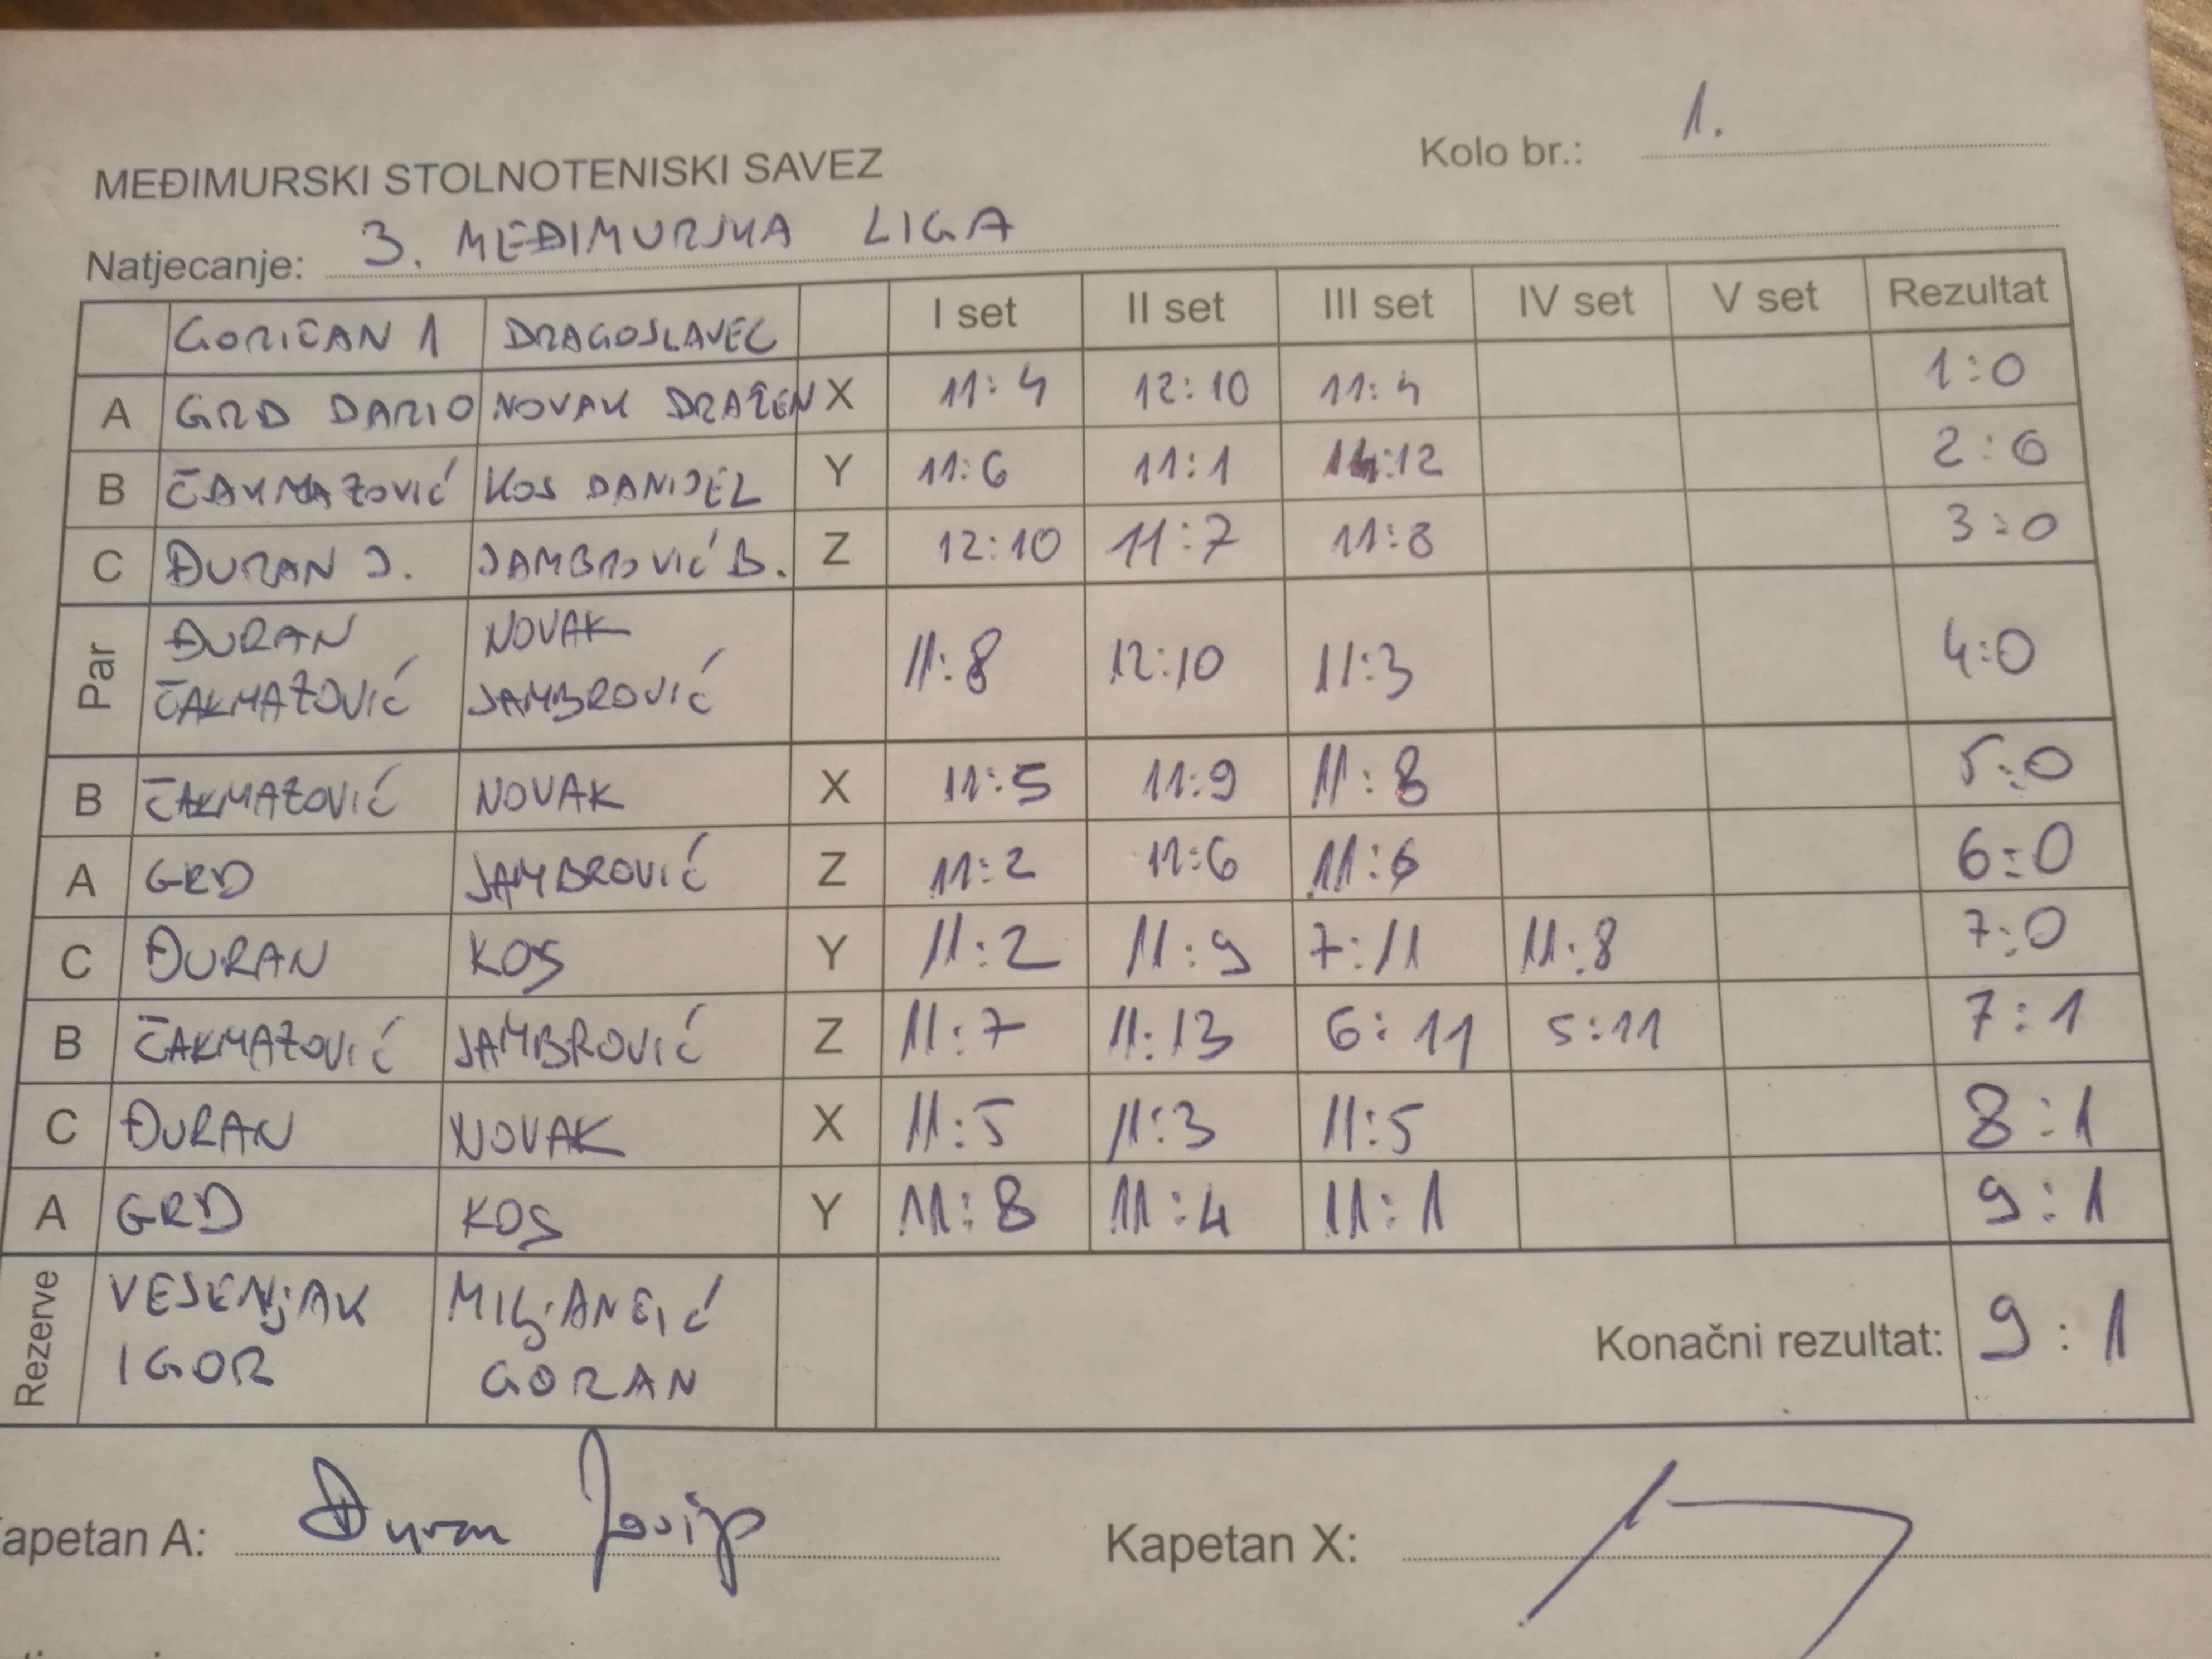 Kolo br.: 1.
MEĐIMURSKI STOLNOTENISKI SAVEZ
Natjecanje: 3. MEĐIMURSKA LIGA
GORIČAN 1 DRAGOSLAVEC I set II set III set IV set V set Rezultat
A GRD DARIO NOVAK DRAŽEN X 11:4 12:10 11:4 1:0
B ČAKMAZOVIĆ KOS DANIJEL Y 11:6 11:1 14:12 2:0
C ĐURAN J. JAMBROVIĆ B. Z 12:10 11:7 11:8 3:0
Par ĐURAN NOVAK 11:8 12:10 11:3 4:0
ČAKMAZOVIĆ JAMBROVIĆ
B ČAKMAZOVIĆ NOVAK X 11:5 11:9 11:8 5:0
A GRD JAMBROVIĆ Z 11:2 11:6 11:6 6:0
C ĐURAN KOS Y 11:2 11:9 7:11 11:8 7:0
B ČAKMAZOVIĆ JAMBROVIĆ Z 11:7 11:13 6:11 5:11 7:1
C ĐURAN NOVAK X 11:5 11:3 11:5 8:1
A GRD KOS Y 11:8 11:4 11:1 9:1
Rezerve VESENjAK MILjANČIĆ
IGOR GORAN
Konačni rezultat: 9:1
apetan A: Đuran Josip Kapetan X: